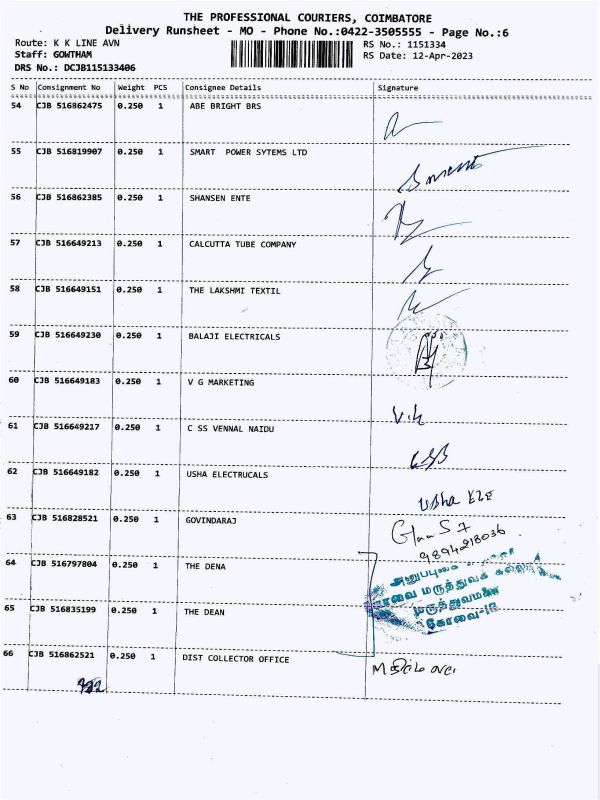 THE PROFESSIONAL COURIERS, COIMBATORE
Delivery Runsheet - MO - Phone No.:0422-3505555 - Page No.:6
Route: K K LINE AVN RS No.: 1151334
Staff: GOWTHAM RS Date: 12-Apr-2023
DRS No.: DCJB115133406
S No Consignment No Weight PCS Consignee Details Signature
54 CJB 516862475 0.250 1 ABE BRIGHT BRS
55 CJB 516819907 0.250 1 SMART POWER SYTEMS LTD
56 CJB 516862385 0.250 1 SHANSEN ENTE
57 CJB 516649213 0.250 1 CALCUTTA TUBE COMPANY
58 CJB 516649151 0.250 1 THE LAKSHMI TEXTIL
59 CJB 516649230 0.250 1 BALAJI ELECTRICALS
60 CJB 516649183 0.250 1 V G MARKETING
61 CJB 516649217 0.250 1 C SS VENNAL NAIDU
62 CJB 516649182 0.250 1 USHA ELECTRUCALS
Usha ELE
63 CJB 516828521 0.250 1 GOVINDARAJ
9894218036
64 CJB 516797804 0.250 1 THE DENA
கோவை மருத்துவக்
மருத்துவமனை
கோவை-18
65 CJB 516835199 0.250 1 THE DEAN
66 CJB 516862521 0.250 1 DIST COLLECTOR OFFICE